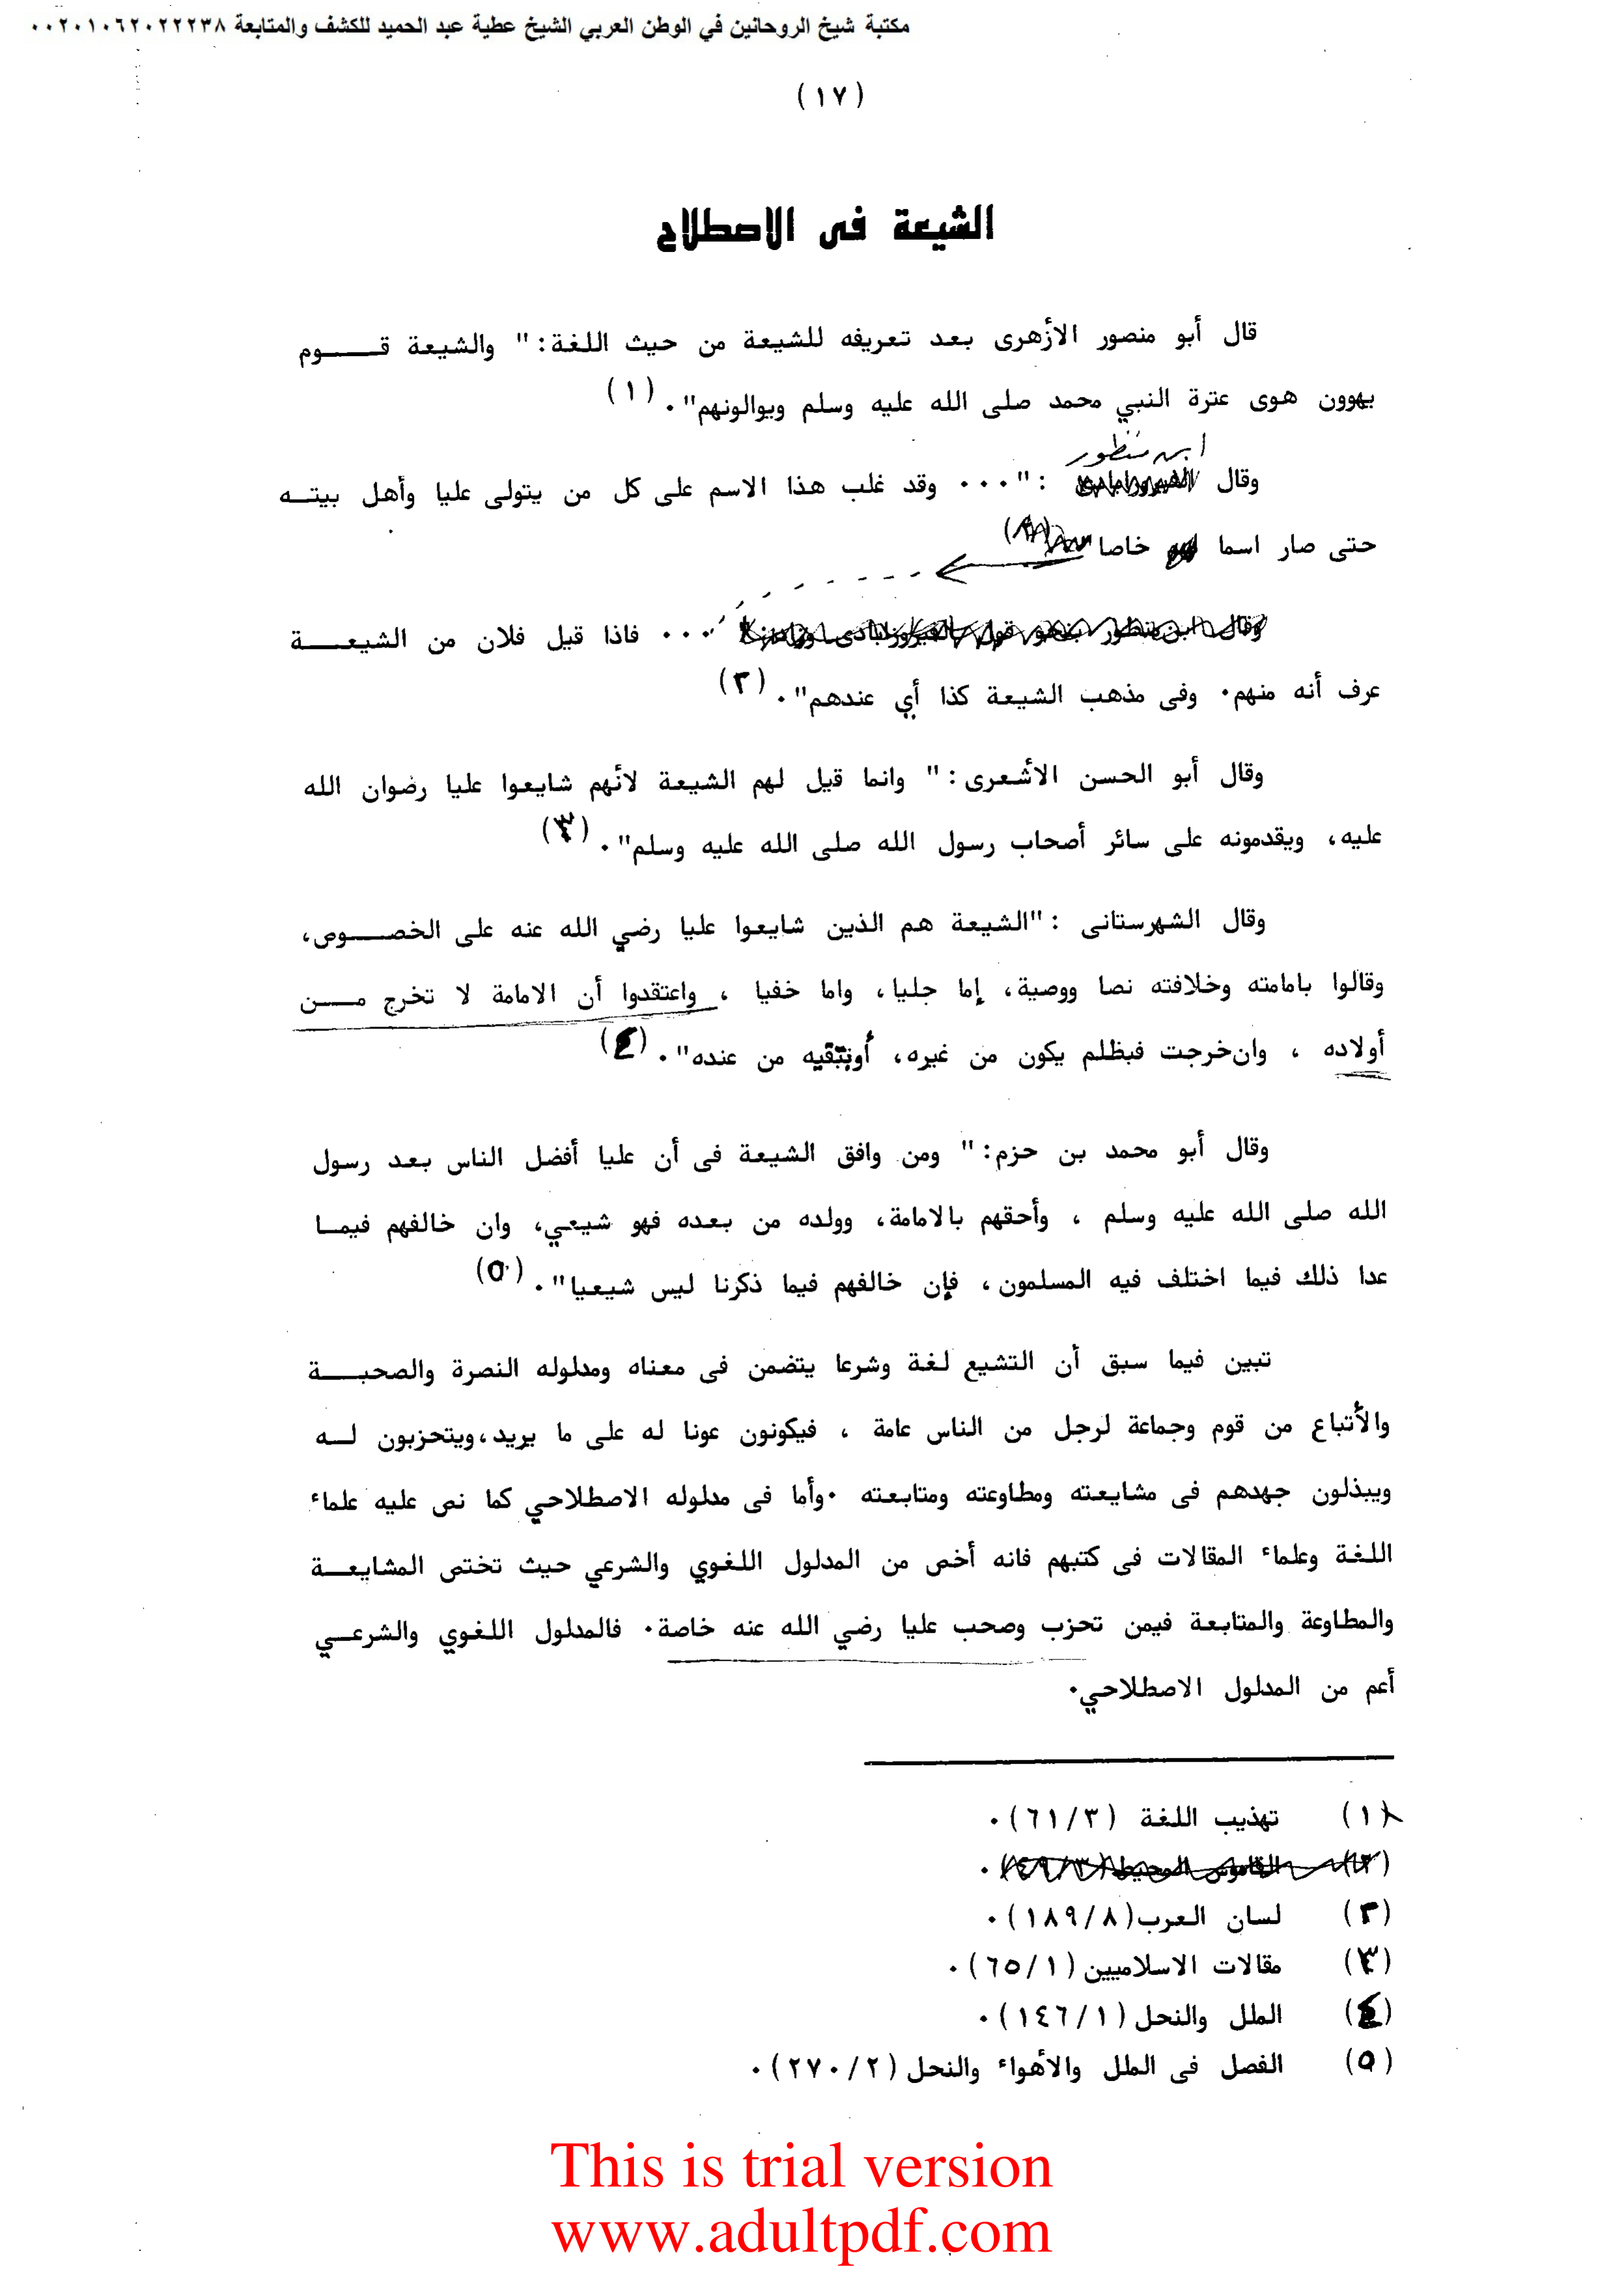 مكتبة شيخ الروحانين في الوطن العربي الشيخ عطية عبد الحميد للكشف والمتابعة ٠٠٢٠١٠٦٢٠٢٢٢٣٨
(١٧)
الشيعة فى الاصطلاح
قال أبو منصور الأزهرى بعد تعريفه للشيعة من حيث اللغة: " والشيعة قـــــوم
يهوون هوى عترة النبي محمد صلى الله عليه وسلم ويوالونهم". (١)
ابن منظور
وقال الفيروزابادى : "٠٠٠ وقد غلب هذا الاسم على كل من يتولى عليا وأهل بيتــه
حتى صار اسما لهم خاصا
٠٠٠ فاذا قيل فلان من الشيعـــــة
عرف أنه منهم. وفى مذهب الشيعة كذا أي عندهم". (٢)
وقال أبو الحسن الأشعرى: " وانما قيل لهم الشيعة لأنهم شايعوا عليا رضوان الله
عليه، ويقدمونه على سائر أصحاب رسول الله صلى الله عليه وسلم". (٣)
وقال الشهرستانى : "الشيعة هم الذين شايعوا عليا رضي الله عنه على الخصــــوص،
وقالوا بامامته وخلافته نصا ووصية، إما جليا، واما خفيا ، واعتقدوا أن الامامة لا تخرج مـــن
أولاده ، وان خرجت فبظلم يكون من غيره، أوبتقيه من عنده". (٤)
وقال أبو محمد بن حزم: " ومن وافق الشيعة فى أن عليا أفضل الناس بعد رسول
الله صلى الله عليه وسلم ، وأحقهم بالامامة، وولده من بعده فهو شيعي، وان خالفهم فيمــا
عدا ذلك فيما اختلف فيه المسلمون، فإن خالفهم فيما ذكرنا ليس شيعيا". (٥)
تبين فيما سبق أن التشيع لغة وشرعا يتضمن فى معناه ومدلوله النصرة والصحبــــة
والأتباع من قوم وجماعة لرجل من الناس عامة ، فيكونون عونا له على ما يريد، ويتحزبون لــه
ويبذلون جهدهم فى مشايعته ومطاوعته ومتابعته .وأما فى مدلوله الاصطلاحي كما نص عليه علماء
اللغة وعلماء المقالات فى كتبهم فانه أخص من المدلول اللغوي والشرعي حيث تختص المشايعـــة
والمطاوعة والمتابعة فيمن تحزب وصحب عليا رضي الله عنه خاصة. فالمدلول اللغوي والشرعــي
أعم من المدلول الاصطلاحي.
(١) تهذيب اللغة (٦١/٣).
(٢) القاموس المحيط (٤٩/٣).
(٢) لسان العرب (١٨٩/٨).
(٣) مقالات الاسلاميين (٦٥/١).
(٤) الملل والنحل (١٤٦/١).
(٥) الفصل فى الملل والأهواء والنحل (٢٧٠/٢).
This is trial version
www.adultpdf.com